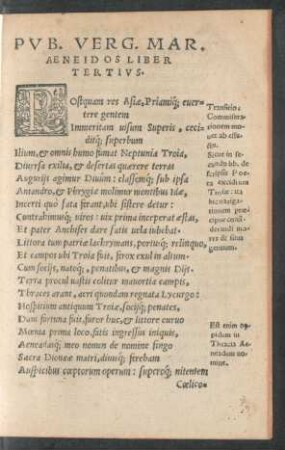 PVB. VERG. MAR.
AENEIDOS LIBER
TERTIVS.
POstquam res Asiæ, Priamiq́; euer-
tere gentem
Immeritam uisum Superis, ceci-
ditq́; superbum
Ilium, & omnis humo fumat Neptunia Troia,
Diuersa exilia, & desertas quærere terras
Augurijs agimur Diuûm: classemq́; sub ipsa
Antandro, & Phrygiæ molimur montibus Idæ,
Incerti quò fata ferant, ubi sistere detur:
Contrahimusq́; uiros: uix prima inceperat æstas,
Et pater Anchises dare fatis uela iubebat.
Littora tum patriæ lachrymans, portusq́; relinquo,
Et campos ubi Troia fuit, feror exul in altum.
Cum socijs, natoq́;, penatibus, & magnis Dijs.
Terra procul uastis colitur mauortia campis,
Thraces arant, acri quondam regnata Lycurgo:
Hospitium antiquum Troiæ, socijq́; penates,
Dum fortuna fuit, feror huc, & littore curuo
Mœnia prima loco, fatis ingressus iniquis,
Aeneadasq́; meo nomen de nomine fingo
Sacra Dioneæ matri, diuisq́; ferebam
Auspicibus cœptorum operum: superoq́; nitentem
Cœlico-
Transitio:
Sicut in se-
cundo lib. de
scripsit Poë-
ta excidium
Troiæ: ita
hic
genium.
Est enim op-
pidum in
Thracia Ae-
neadum no-
mine.